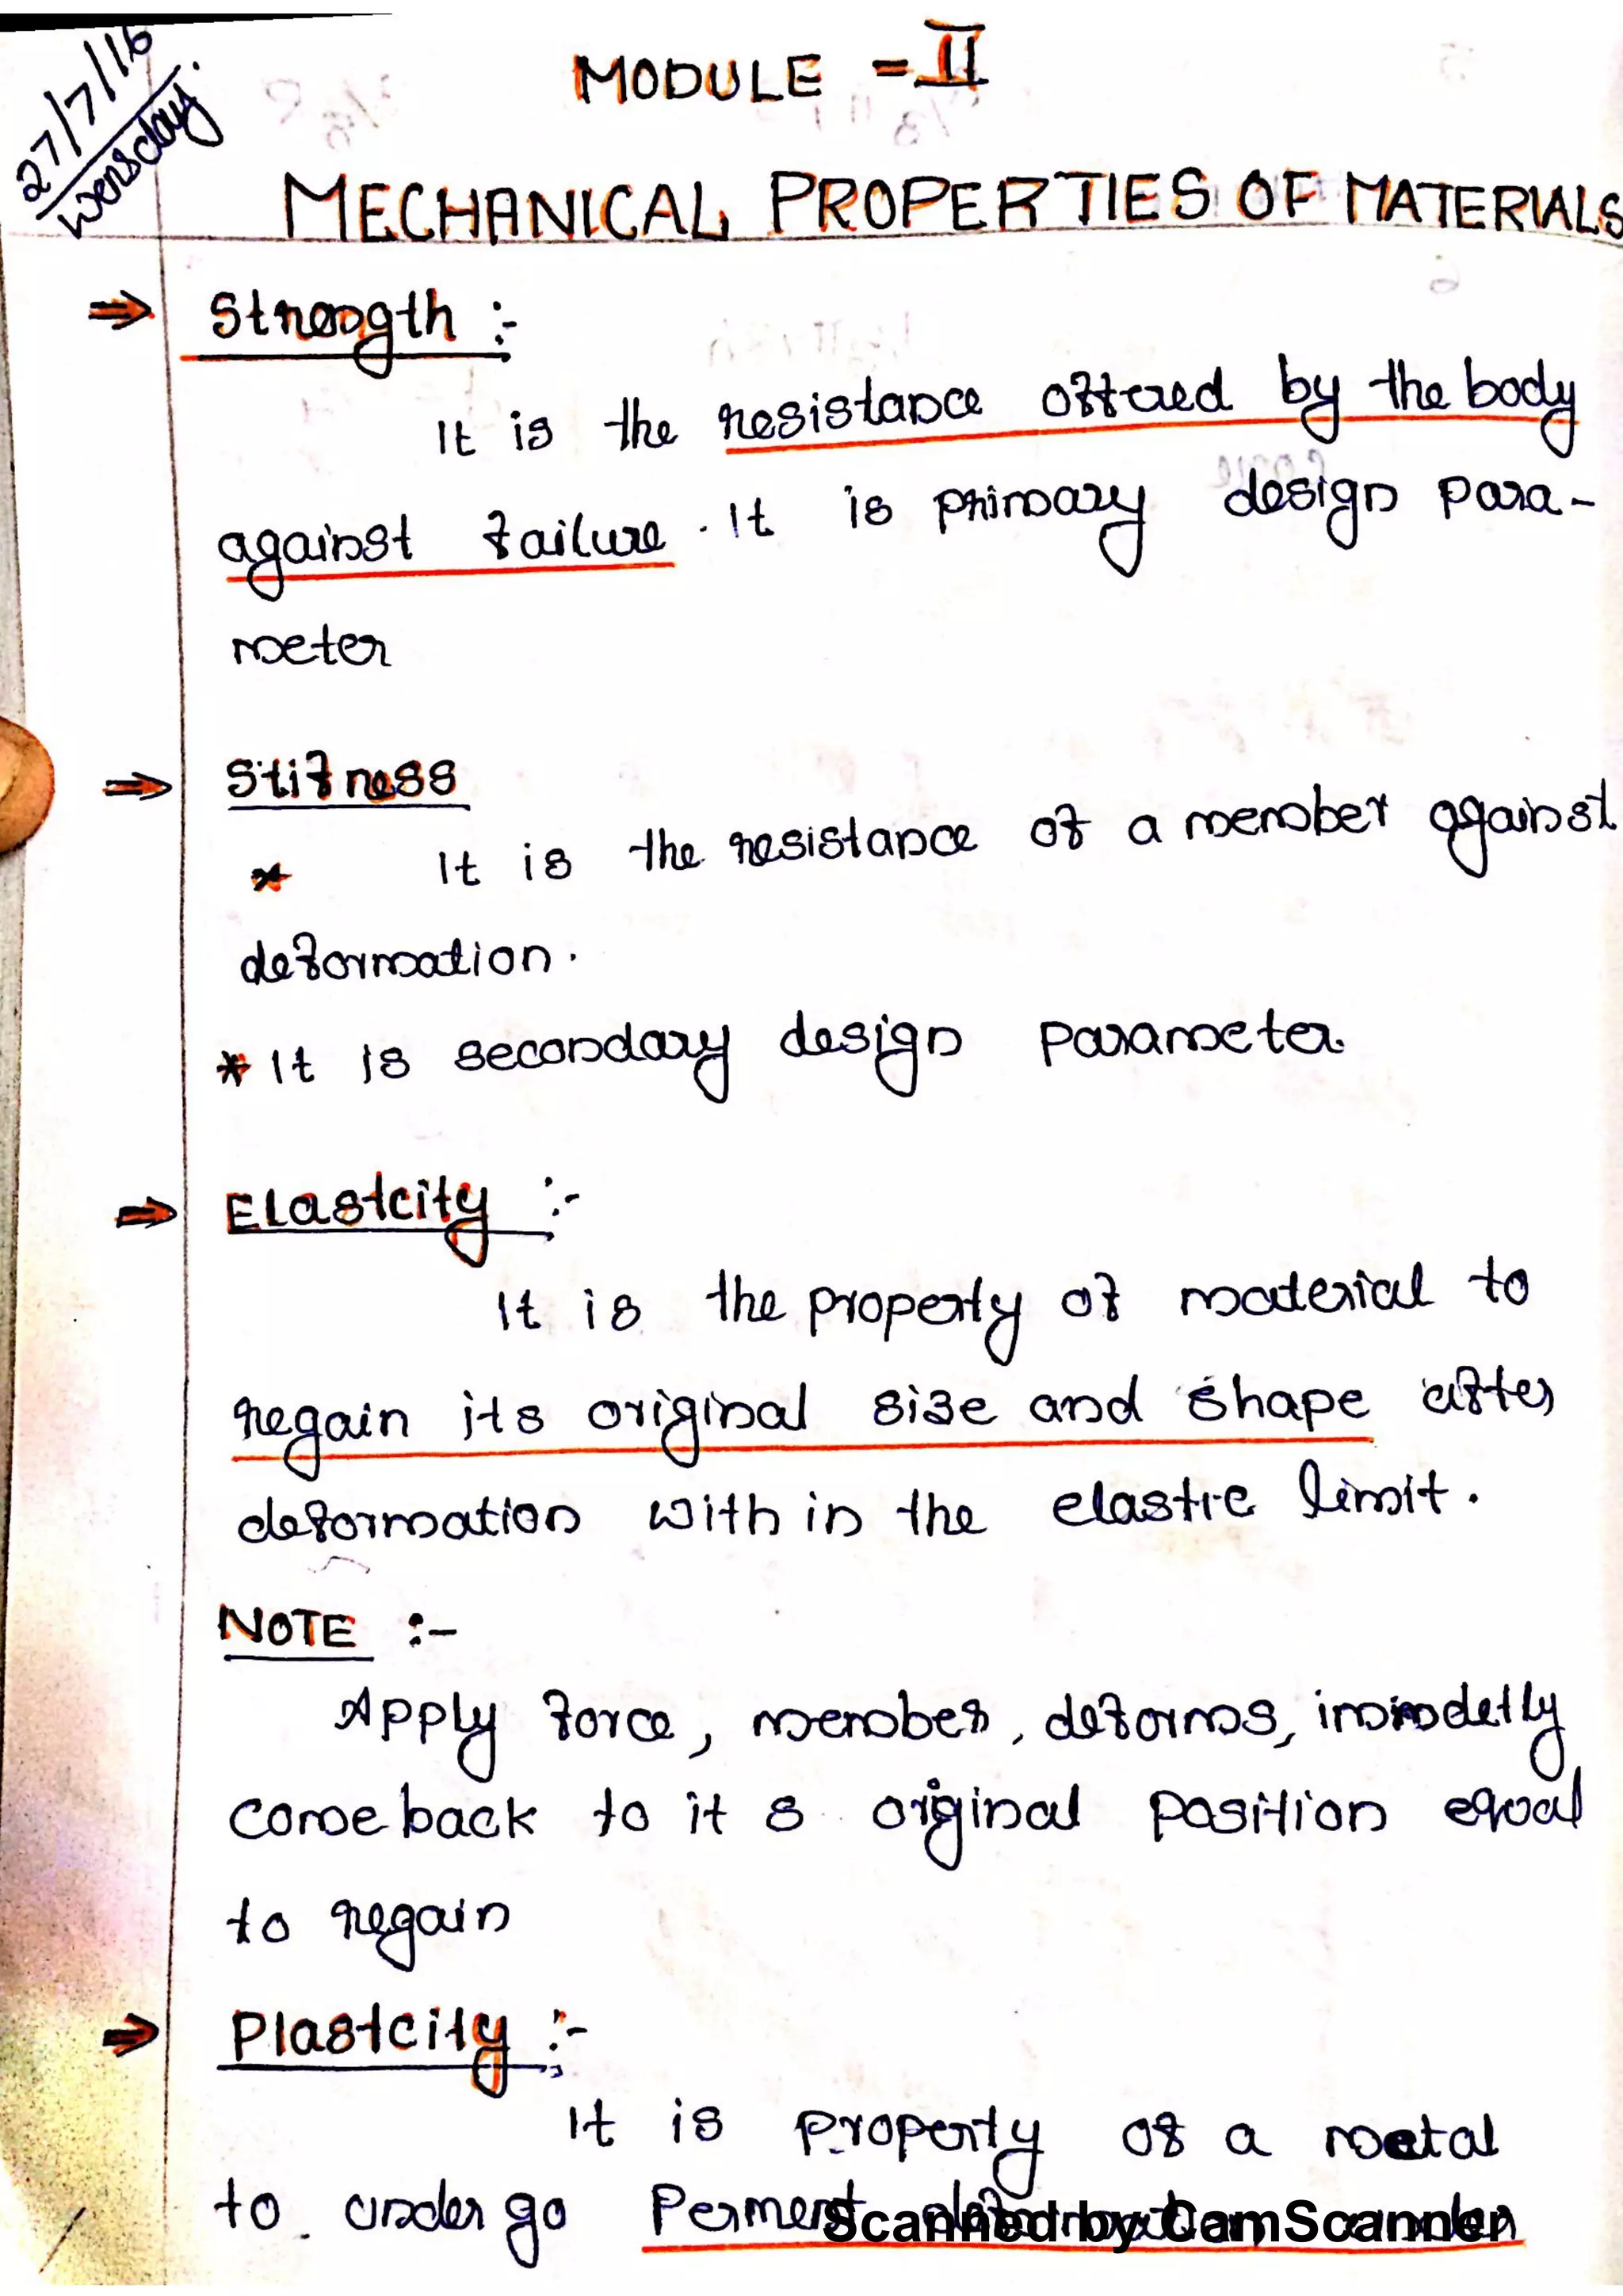 27/7/16
Wensday.
MODULE - II
MECHANICAL PROPERTIES OF MATERIALS
⇒ Strength :-
It is the resistance offered by the body
against failure. It is primary design para-
meter
⇒ Stifness
* It is the resistance of a member against
deformation.
* It is secondary design parameter.
⇒ Elastcity :-
It is the property of material to
regain its original size and shape after
deformation with in the elastic limit.
NOTE :-
Apply force, member, deforms, immdetly
come back to it s original position equal
to regain
⇒ Plastcity :-
It is property of a metal
to undergo Perment deformation under
Scanned by CamScanner